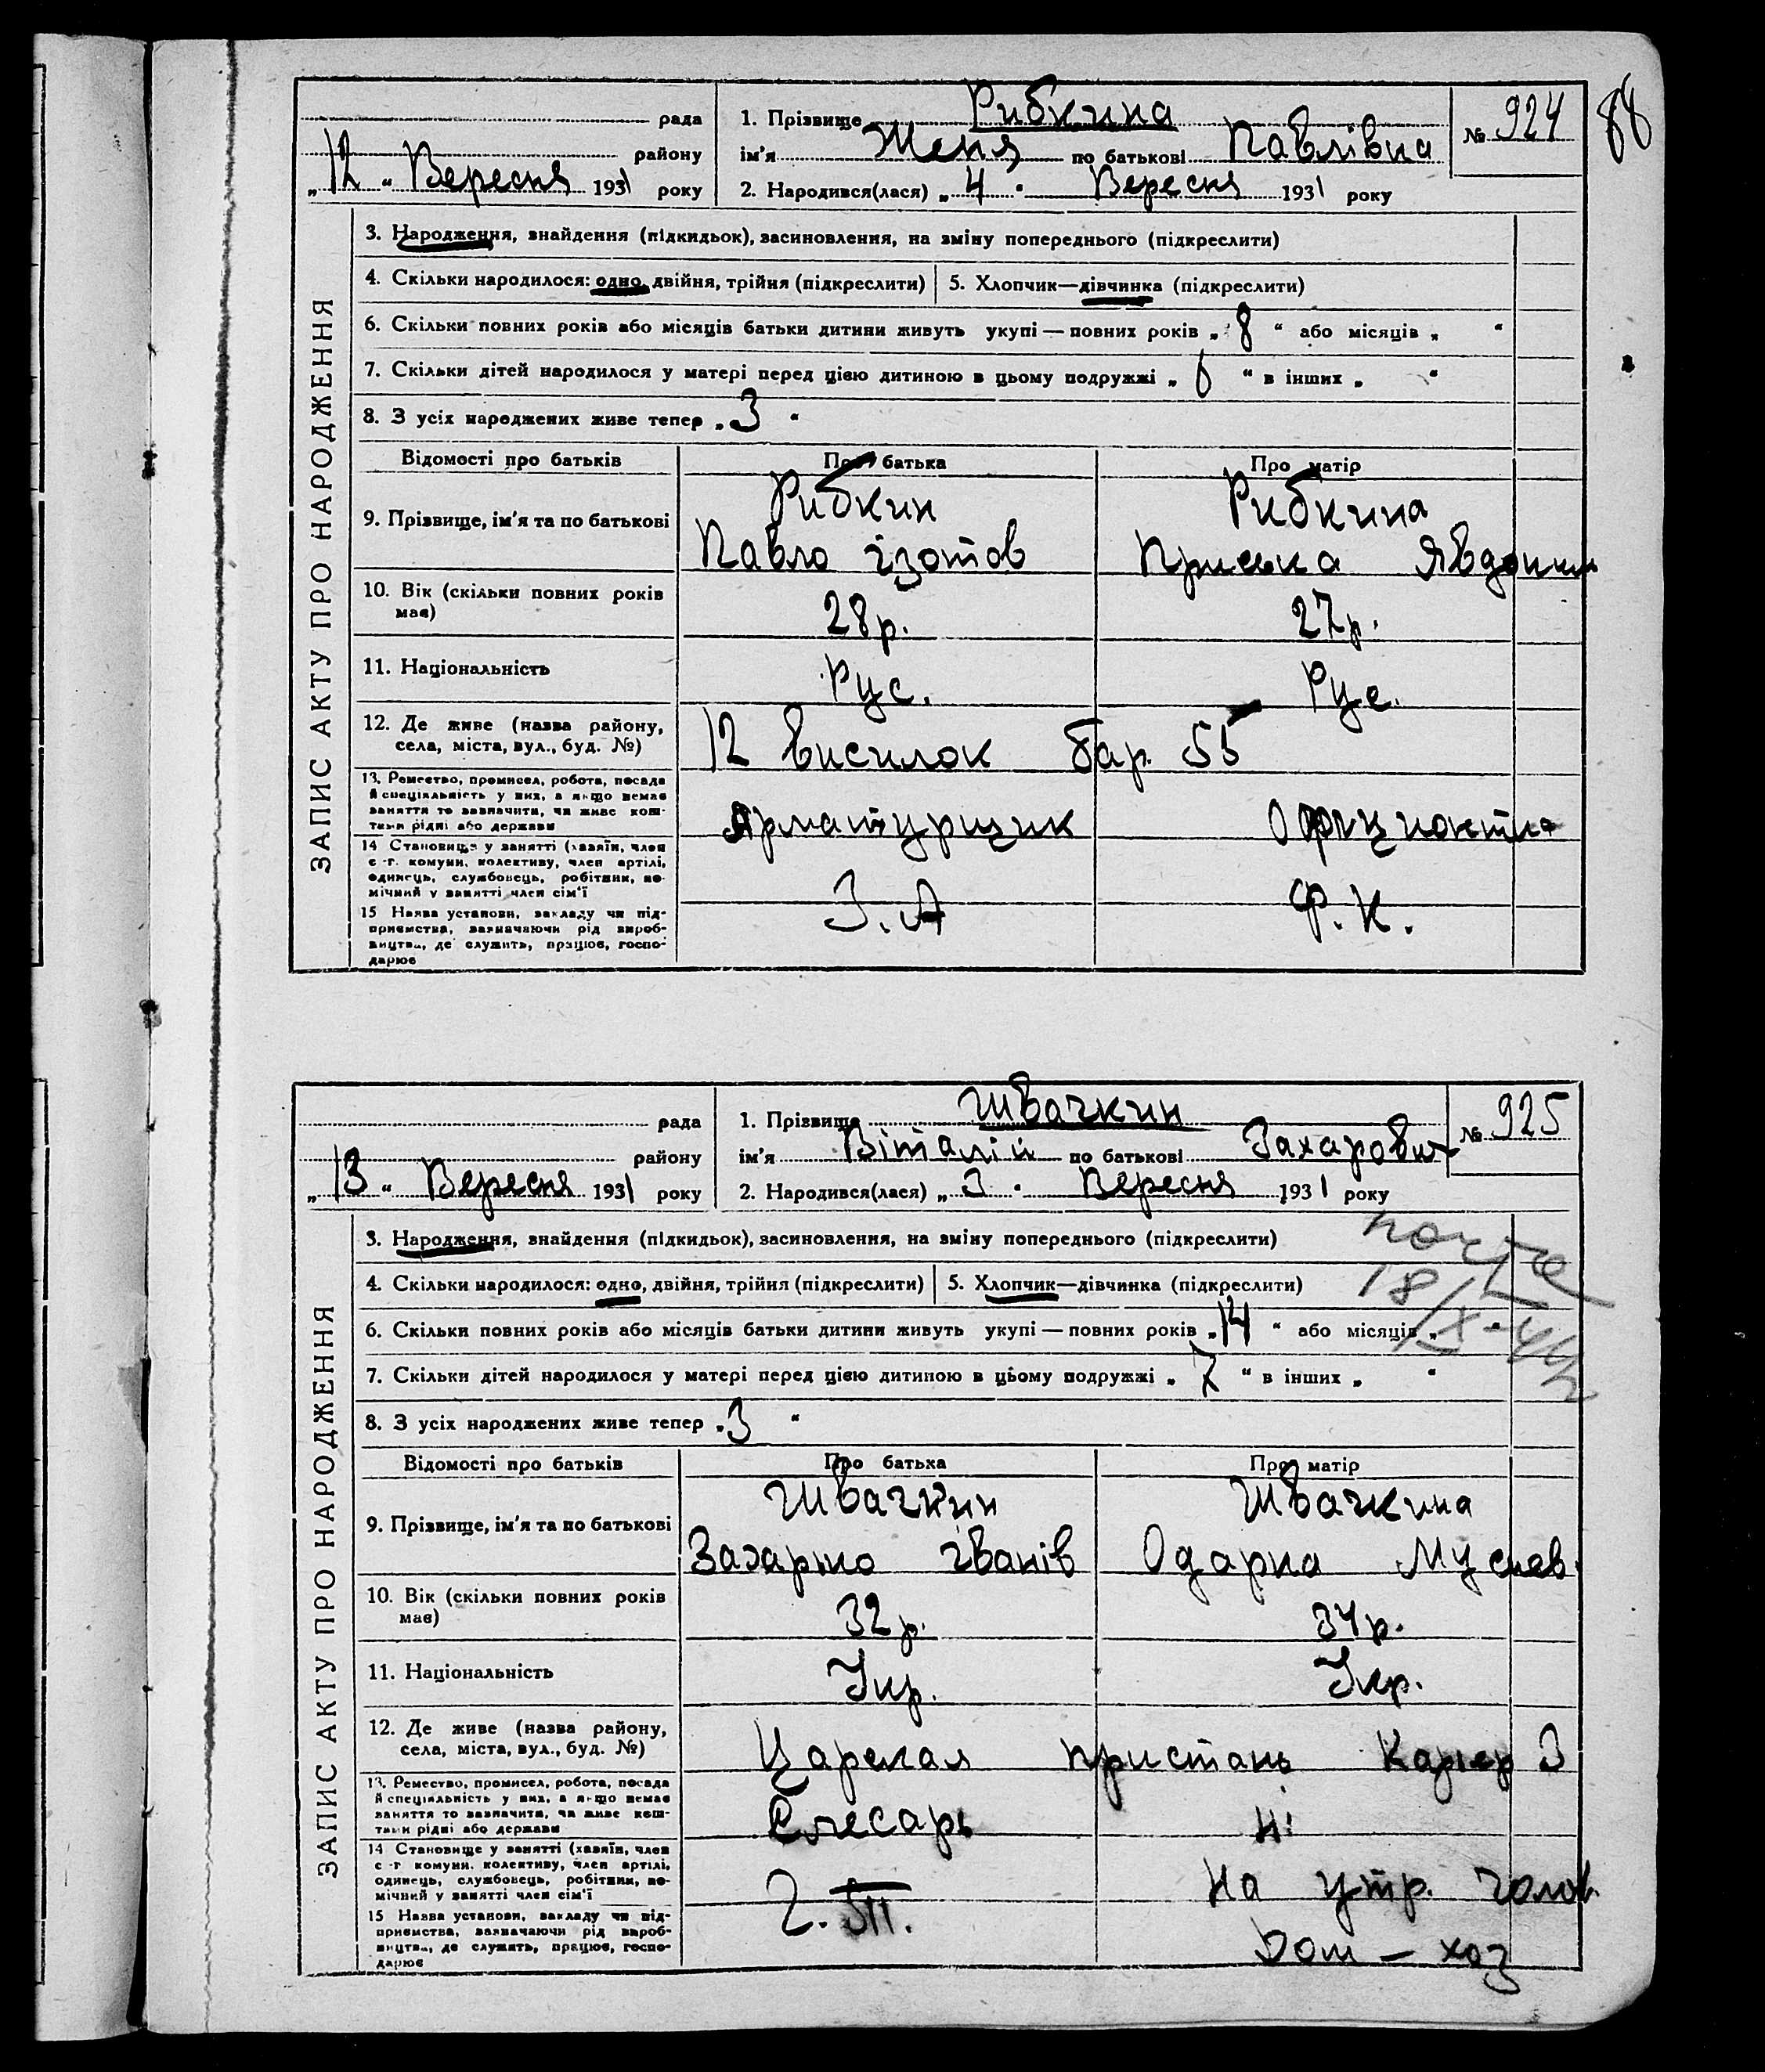 рада
району
„12" Вересня 1931 року
1. Прізвище Рибкина
ім'я Женя по батькові Павлівна
2. Народився(лася) „4" Вересня 1931 року
№ 924
88
ЗАПИС АКТУ ПРО НАРОДЖЕННЯ
3. Народження, знайдення (підкидьок), засиновлення, на зміну попереднього (підкреслити)
4. Скільки народилося: одно, двійня, трійня (підкреслити) 5. Хлопчик—дівчинка (підкреслити)
6. Скільки повних років або місяців батьки дитини живуть укупі — повних років „8" або місяців „ "
7. Скільки дітей народилося у матері перед цією дитиною в цьому подружжі „6" в інших „ "
8. З усіх народжених живе тепер „3"
Відомості про батьків Про батька Про матір
9. Прізвище, ім'я та по батькові
Рибкин Рибкина
Павло Ізотов Приська Явдоким
10. Вік (скільки повних років має)
28р. 27р.
11. Національність
Рус. Рус.
12. Де живе (назва району, села, міста, вул., буд. №)
12 висилок бар. 55
13. Ремество, промисел, робота, посада й спеціяльність у них, а якщо немає заняття то зазначити, чи живе коштами рідні або держави
Арматурщик
14 Становище у занятті (хазяїн, член с.-г. комуни, колективу, член артілі, одинець, службовець, робітник, помічний у занятті член сім'ї
15 Назва установи, закладу чи підприємства, зазначаючи рід виробництва, де служить, працює, господарює
З. А Ф. К.
рада
району
„13" Вересня 1931 року
1. Прізвище Швачкин
ім'я Віталій по батькові Захарович
2. Народився(лася) „3" Вересня 1931 року
№ 925
ЗАПИС АКТУ ПРО НАРОДЖЕННЯ
3. Народження, знайдення (підкидьок), засиновлення, на зміну попереднього (підкреслити)
4. Скільки народилося: одно, двійня, трійня (підкреслити) 5. Хлопчик—дівчинка (підкреслити)
6. Скільки повних років або місяців батьки дитини живуть укупі — повних років „14" або місяців „ "
7. Скільки дітей народилося у матері перед цією дитиною в цьому подружжі „7" в інших „ "
8. З усіх народжених живе тепер „3"
Відомості про батьків Про батька Про матір
9. Прізвище, ім'я та по батькові
Швачкин Швачкина
Захарко Іванів Одарка Мусиев.
10. Вік (скільки повних років має)
32р. 34р.
11. Національність
Укр. Укр.
12. Де живе (назва району, села, міста, вул., буд. №)
Царская пристань Карьер 3
13. Ремество, промисел, робота, посада й спеціяльність у них, а якщо немає заняття то зазначити, чи живе коштами рідні або держави
Слесарь Ні
14 Становище у занятті (хазяїн, член с.-г. комуни, колективу, член артілі, одинець, службовець, робітник, помічний у занятті член сім'ї
На утр. чолов.
15 Назва установи, закладу чи підприємства, зазначаючи рід виробництва, де служить, працює, господарює
Дом — хоз